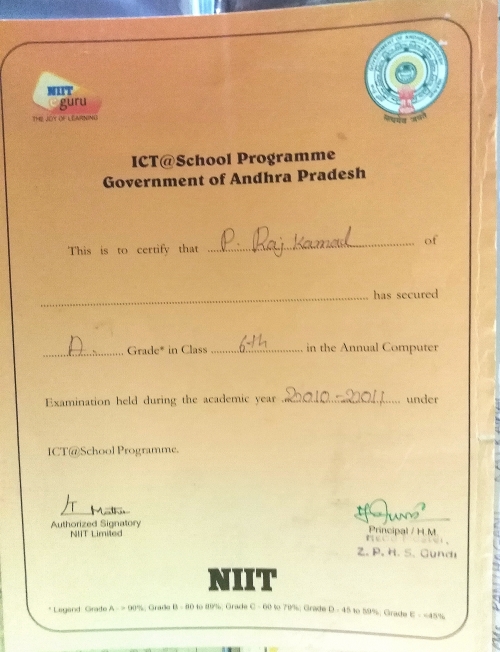 NIIT
eguru
THE JOY OF LEARNING
GOVERNMENT OF ANDHRA PRADESH
सत्यमेव जयते
ICT@School Programme
Government of Andhra Pradesh
This is to certify that P. Raj Kamal of
has secured
A. Grade* in Class 6th in the Annual Computer
Examination held during the academic year 20010-20011 under
ICT@School Programme.
Authorized Signatory
NIIT Limited
Principal / H.M.
Z. P. H. S. Gundi
NIIT
* Legend: Grade A - > 90%, Grade B - 80 to 89%, Grade C - 60 to 79%, Grade D - 45 to 59%, Grade E - <45%